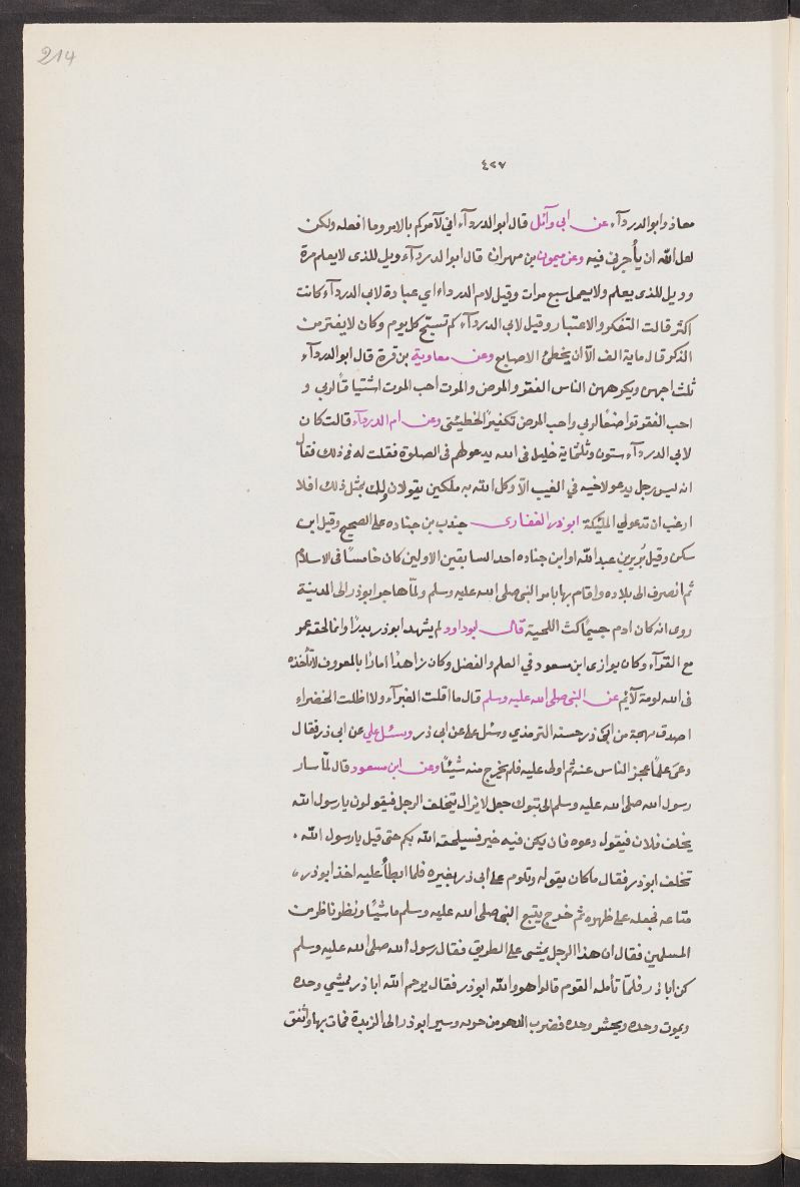 214
٤٢٧
معاذ وابو الدردآء عن ابى وآئل قال ابو الدردآء اني لآمركم بالامر وما افعله ولكن
لعل الله ان يأجرنى فيه وعن ميمون بن مهران قال ابو الدردآء ويل للذى لا يعلم مرة
وويل للذى يعلم ولا يعمل سبع مرات وقيل لام الدرداء اي عبادة لابى الدردآء كانت
اكثر قالت التفكر والاعتبار وقيل لابى الدردآء كم تسبّح كل يوم وكان لا يفتر من
الذكر قال ماية الف الّا ان يخطئ الاصابع وعن معاوية بن قرة قال ابو الدردآء
ثلث احبهن ويكرههن الناس الفقر والمرض والموت احب الموت اشتياقاً لربي و
احب الفقر تواضعاً لربي واحب المرض تكفيراً لخطيئتى وعن ام الدردآء قالت كان
لابى الدردآء ستون وثلثماية خليل فى الله يدعو لهم فى الصلوة فقلت له فى ذلك فقال
انه ليس رجل يدعو لاخيه في الغيب الّا وكل الله به ملكين يقولان ولك بمثل ذلك افلا
ارغب ان تدعو لي الملئكة ابو ذر الغفارى جندب بن جناده على الصحيح وقيل ابن
سكن وقيل بُرير بن عبد الله او ابن جناده احد السابقين الاولين كان خامساً فى الاسلام
ثم انصرف الى بلاده واقام بها بامر النبي صلى الله عليه وسلم ولمّا هاجر ابو ذر الى المدينة
روى انه كان ادم جسيمًا كث اللحية قال ابو داود لم يشهد ابو ذر بدرًا وانما الحقه عمر
مع القرآء وكان يوازى ابن مسعود في العلم والفضل وكان زاهدًا امارًا بالمعروف لا تأخذه
فى الله لومة لآئم عن النبي صلى الله عليه وسلم قال ما اقلت الغبرآء ولا اظلت الخضراء
اصدق لهجة من ابى ذر حسنه الترمذي وسئل على عن ابى ذر وسئل علي عن ابى ذر فقال
وعى علمًا عجز الناس عنه ثم اوكى عليه فلم يخرج منه شيئًا وعن ابن مسعود قال لمّا سار
رسول الله صلى الله عليه وسلم الى تبوك جعل لا يزال يتخلف الرجل فيقولون يا رسول الله
يخلف فلان فيقول دعوه فان يكن فيه خير فسيلحقه الله بكم حتى قيل يا رسول الله
تخلف ابو ذر فقال ما كان يقوله وتلوم على ابى ذر بغيره فلما ابطأ عليه اخذ ابو ذر
متاعه فجعله على ظهره ثم خرج يتبع النبي صلى الله عليه وسلم ماشيًا ونظر ناظر من
المسلمين فقال ان هذا الرجل يمشى على الطريق فقال رسول الله صلى الله عليه وسلم
كن ابا ذر فلمّا تأمله القوم قالوا هو والله ابو ذر فقال يرحم الله ابا ذر يمشي وحده
ويموت وحده ويحشر وحده فضرب الدهر من حربه وسير ابو ذر الى الربذة فمات بها واتفق